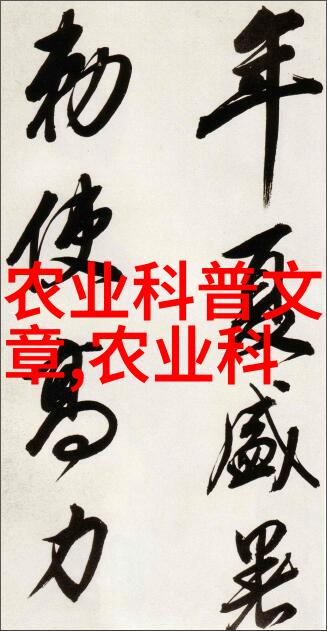 年夏盛暑
勅使高力
农业科普文
章,农业科